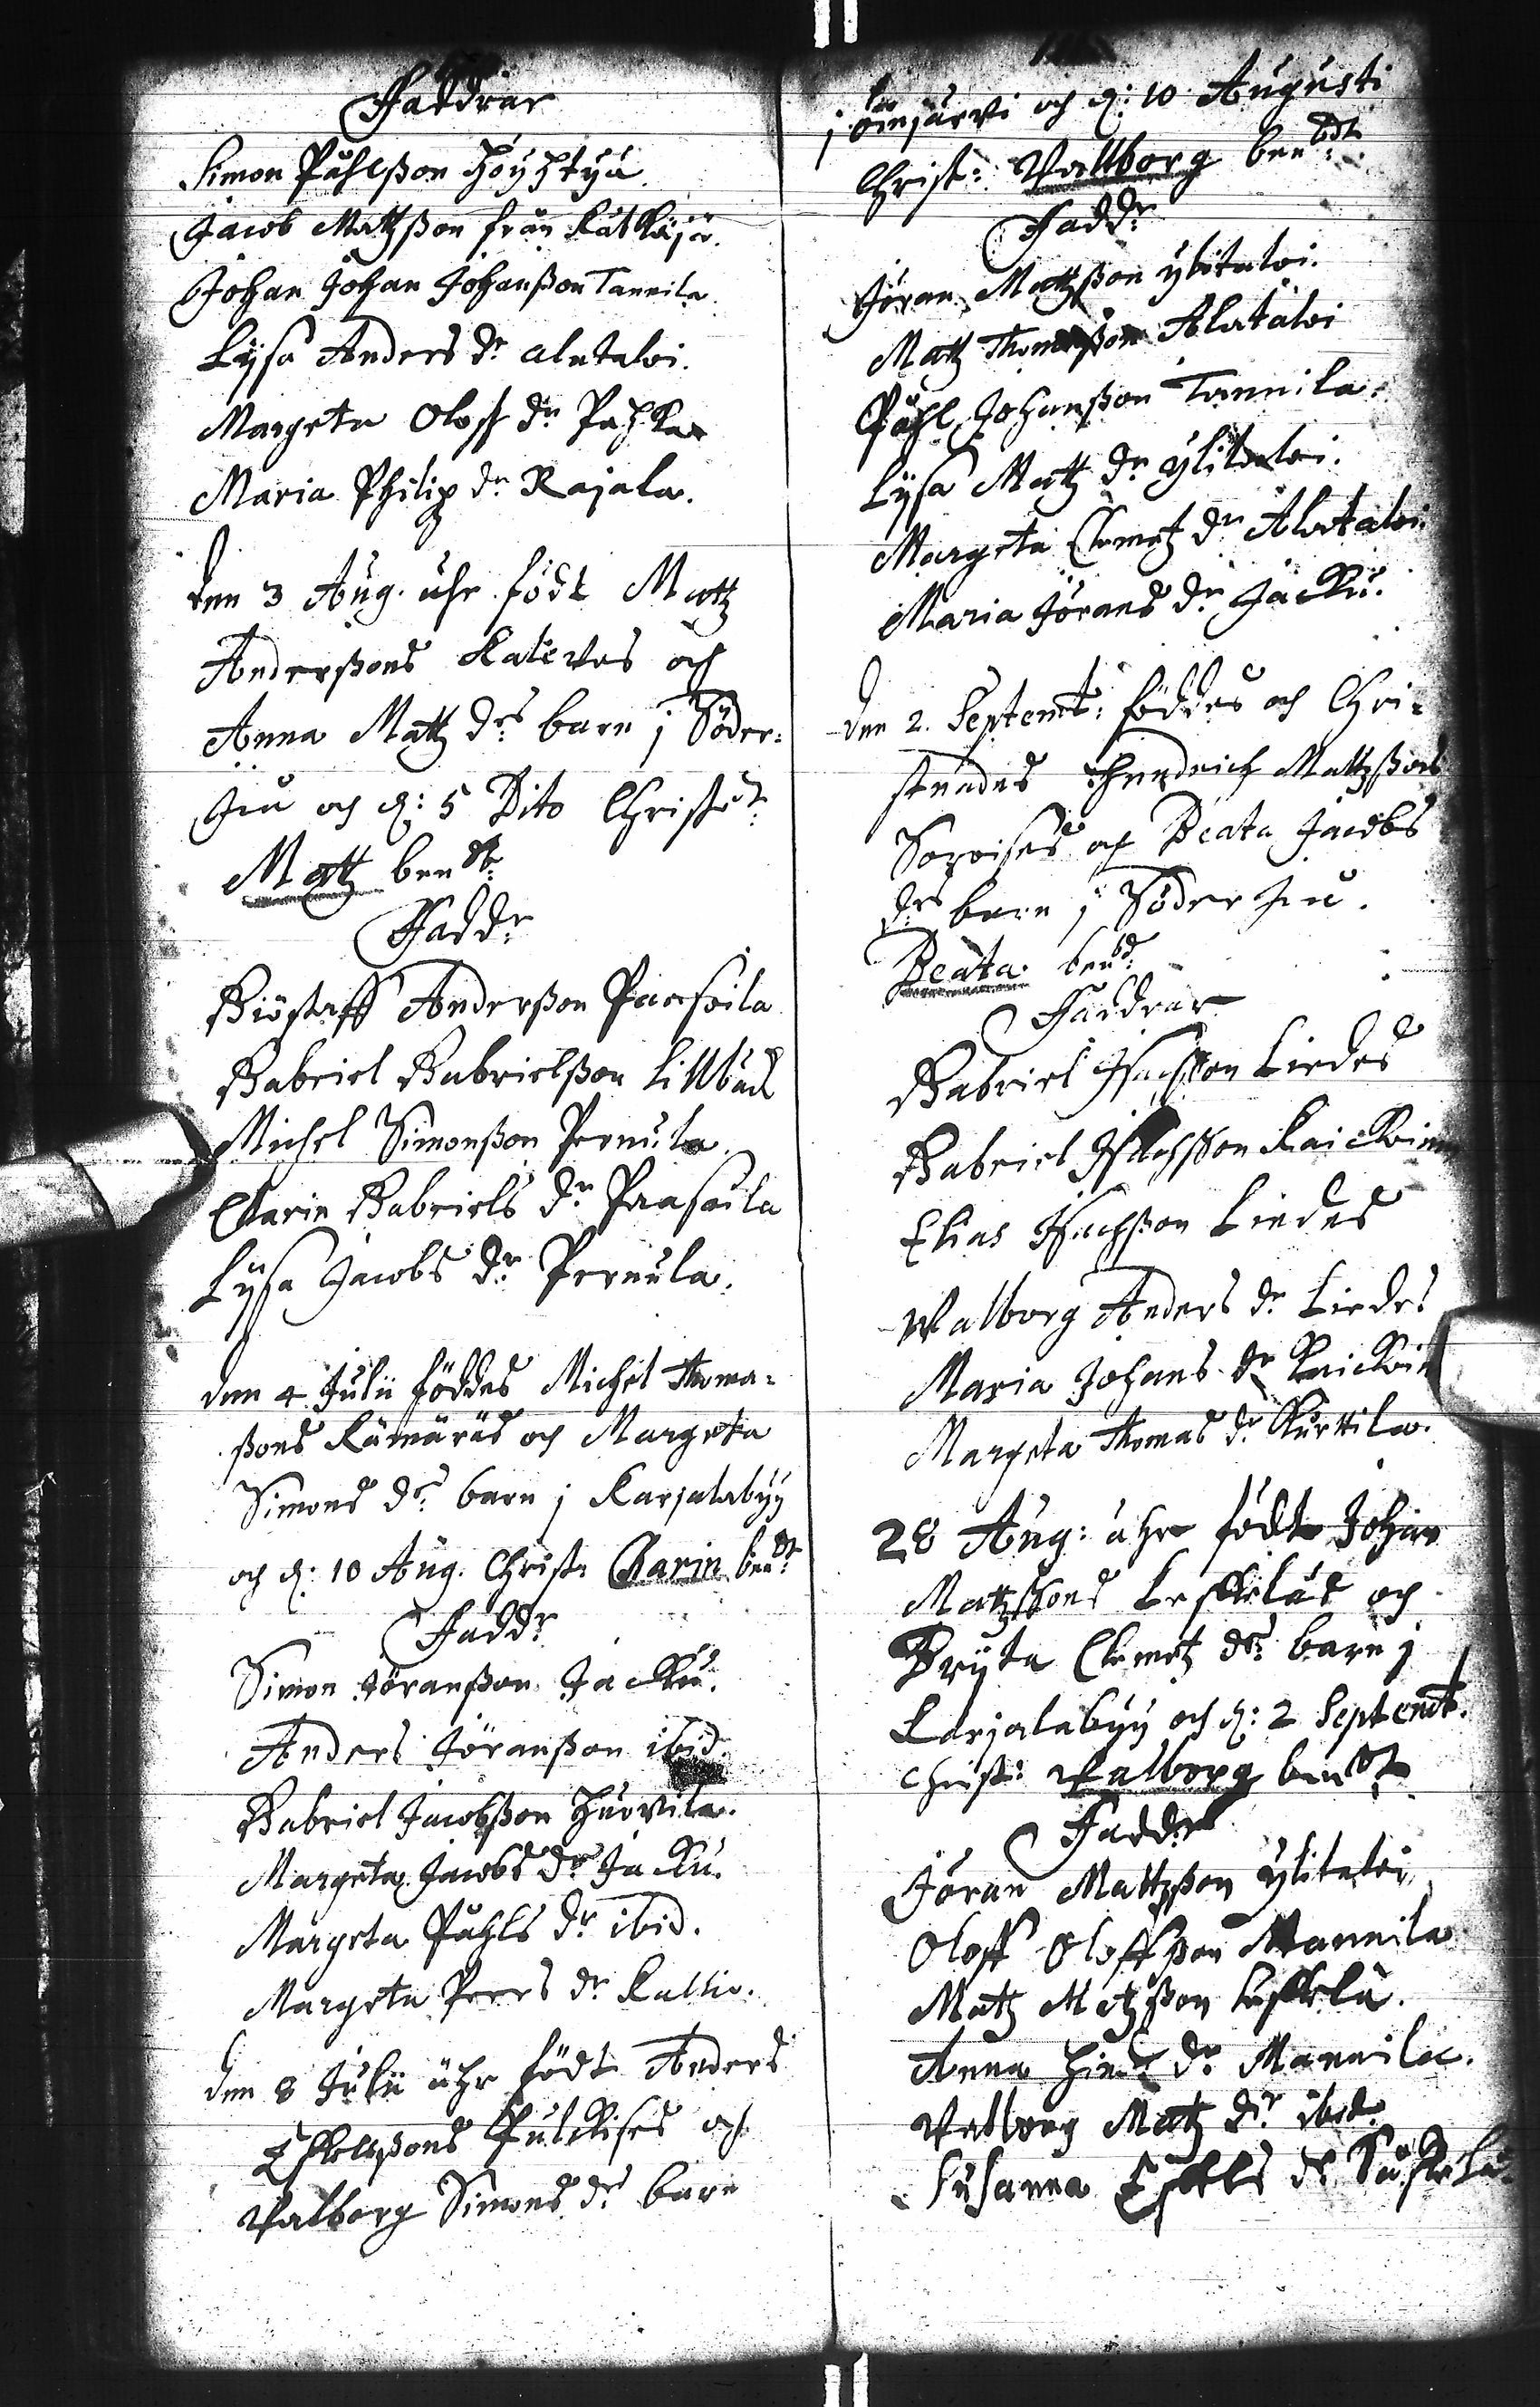 Faddrar
Simon Påhlsson Höyhtyä
Jacob Mattzßon från
Johan Johan Johanßon Tannila
Lysa Anders dr Alatalvi.
Margeta Oloff dr Pahka
Maria Philip dr Rajala.
den 3 Aug. uhr födt Mattz
Anderßons Kalevas och
Anna Mattz drs barn j Söder-
Jiu och d: 5 Dito Christ
Mattz ben
Fadd:r
Giöstaff Anderßon Paasoila
Gabriel Gabrielßon Lillbäck
Michel Simonßon Pernula
Carin Gabriels dr Paasoila
Lysa Jacobs dr Pernula.
den 4 Julii föddes Michel Thoma-
ßons Kämäräs och Margeta
Simons drs barn j Karjalabyy
och d: 10 Aug. Christ: Carin ben:dt
Fadd:r
Simon Jöranßon Jacku.
Anders Jöranßon ibid.
Gabriel Jacobßon Huovila.
Margeta Jacobs dr Jacku.
Margeta Påhls dr ibid.
Margeta Peers dr Kallio.
den 8 Julii uhr födt Anders
Eskelßons Pulckises och
Valborg Simons drs barn
j Oinjärvi och d: 10 Augusti
Christ: Vallborg ben:dt
Fadd:r
Jöran Mattzßon Ylitalvi.
Mattz Thomaßon Alatalvi
Påhl Johanßon Tannila.
Lysa Mattz dr Ylitalvi.
Margeta Clemetz dr Alatalvi.
Maria Jörans dr Jacku.
den 2. Septemb: föddes och Chri-
stnades Hendrich Mattzßons
och Beata Jacobs
drs barn j Söder Jiu.
Beata ben:d
Faddrar
Gabriel Isachßon Liedes
Gabriel Isachßon
Elias Isachßon Liedes
Valborg Anders dr Liedes
Maria Johans dr
Margeta Thomas dr Kurttila.
28 Aug: uhr födt Johan
Matzßons Leskeläs och
Bryta Clemetz drs barn j
Karjalabyy och d: 2 Septemb.
Christ: Valborg ben:dt
Fadd:r
Jöran Mattzßon Ylitalvi
Oloff Oloffßon Mannila
Matz Matzßon Leskelä.
Anna Hind: dr Mannila.
Valborg Matz dr ibid.
Susanna Eskels dr